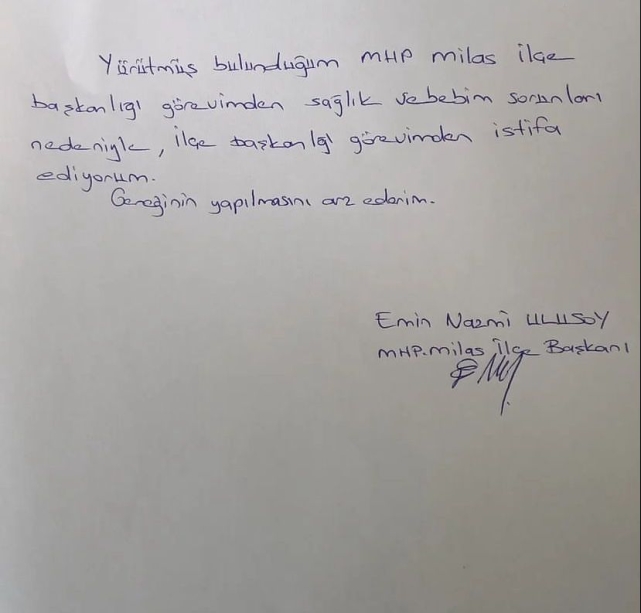 Yürütmüş bulunduğum MHP milas ilçe
başkanlıgı görevimden sağlık sebebim sorunları
nedeniyle, ilçe başkanlgı görevimden istifa
ediyorum.
Gereğinin yapılmasını arz ederim.
Emin Nazmi ULUSOY
MHP.milas İlçe Başkanı